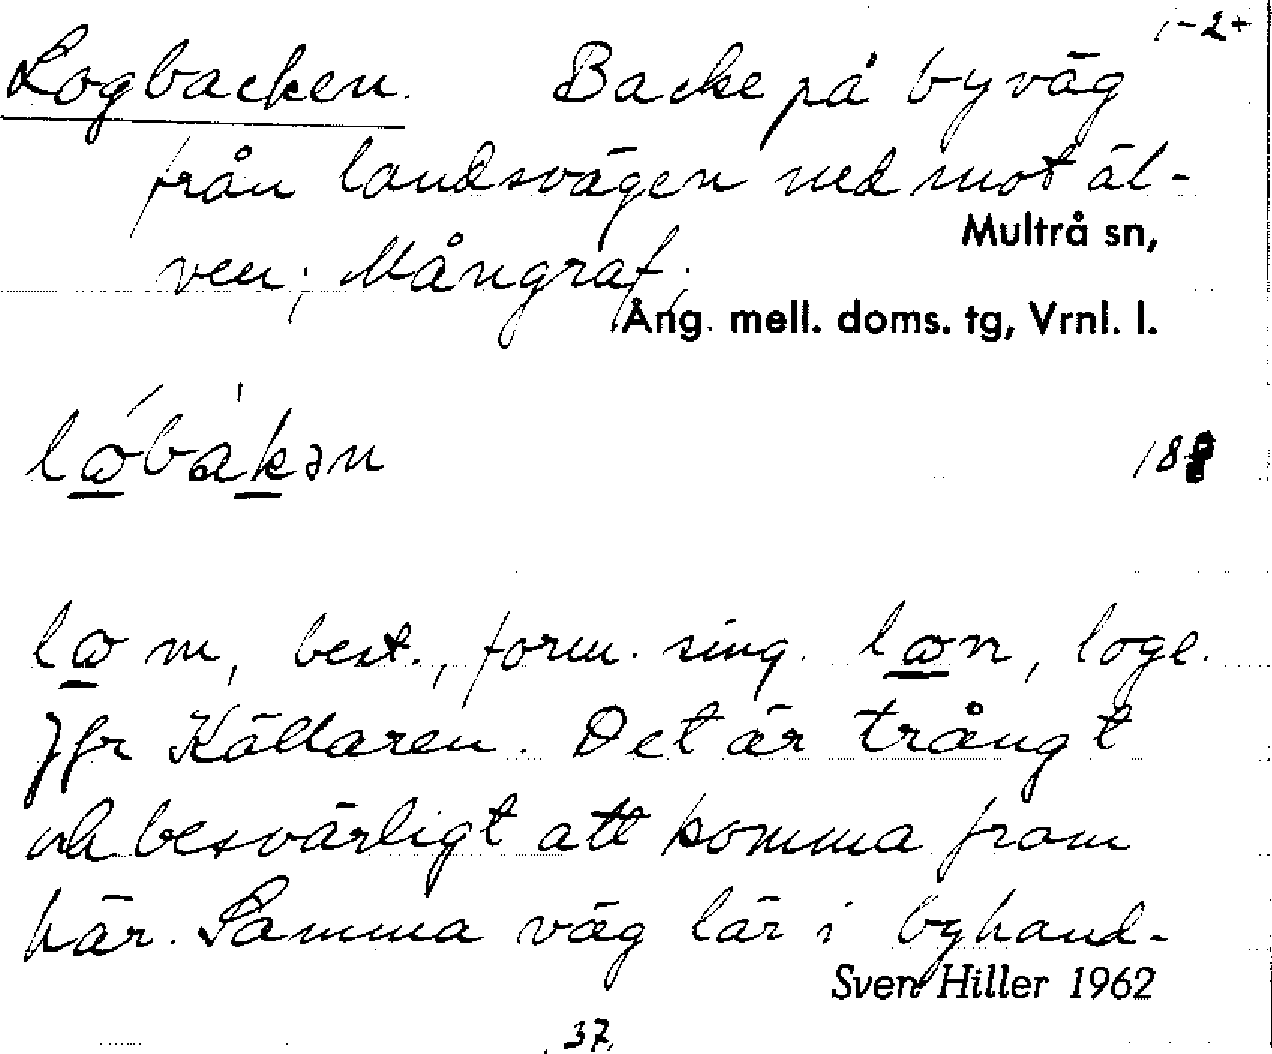 1-2+
Logbacken. Backe på byväg
från landsvägen ned mot äl-
Multrå sn,
ven; Mångraf.
Ång. mell. doms. tg, Vrnl. l.
lo̲bak̲ən
188
lo̲ m, best., form. sing. lo̲n, loge.
Jfr Källaren. Det är trångt
och besvärligt att komma fram
här. Samma väg lär i byhand-
Sven Hiller 1962
37.